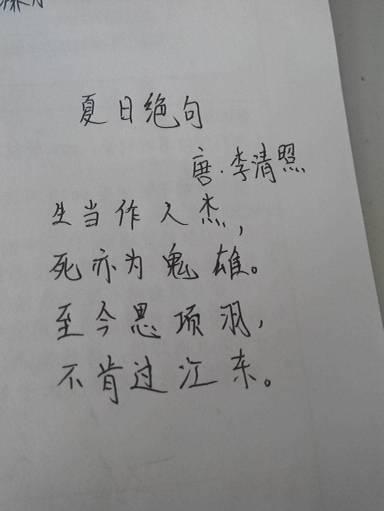 夏日绝句
唐·李清照
生当作人杰,
死亦为鬼雄。
至今思项羽,
不肯过江东。